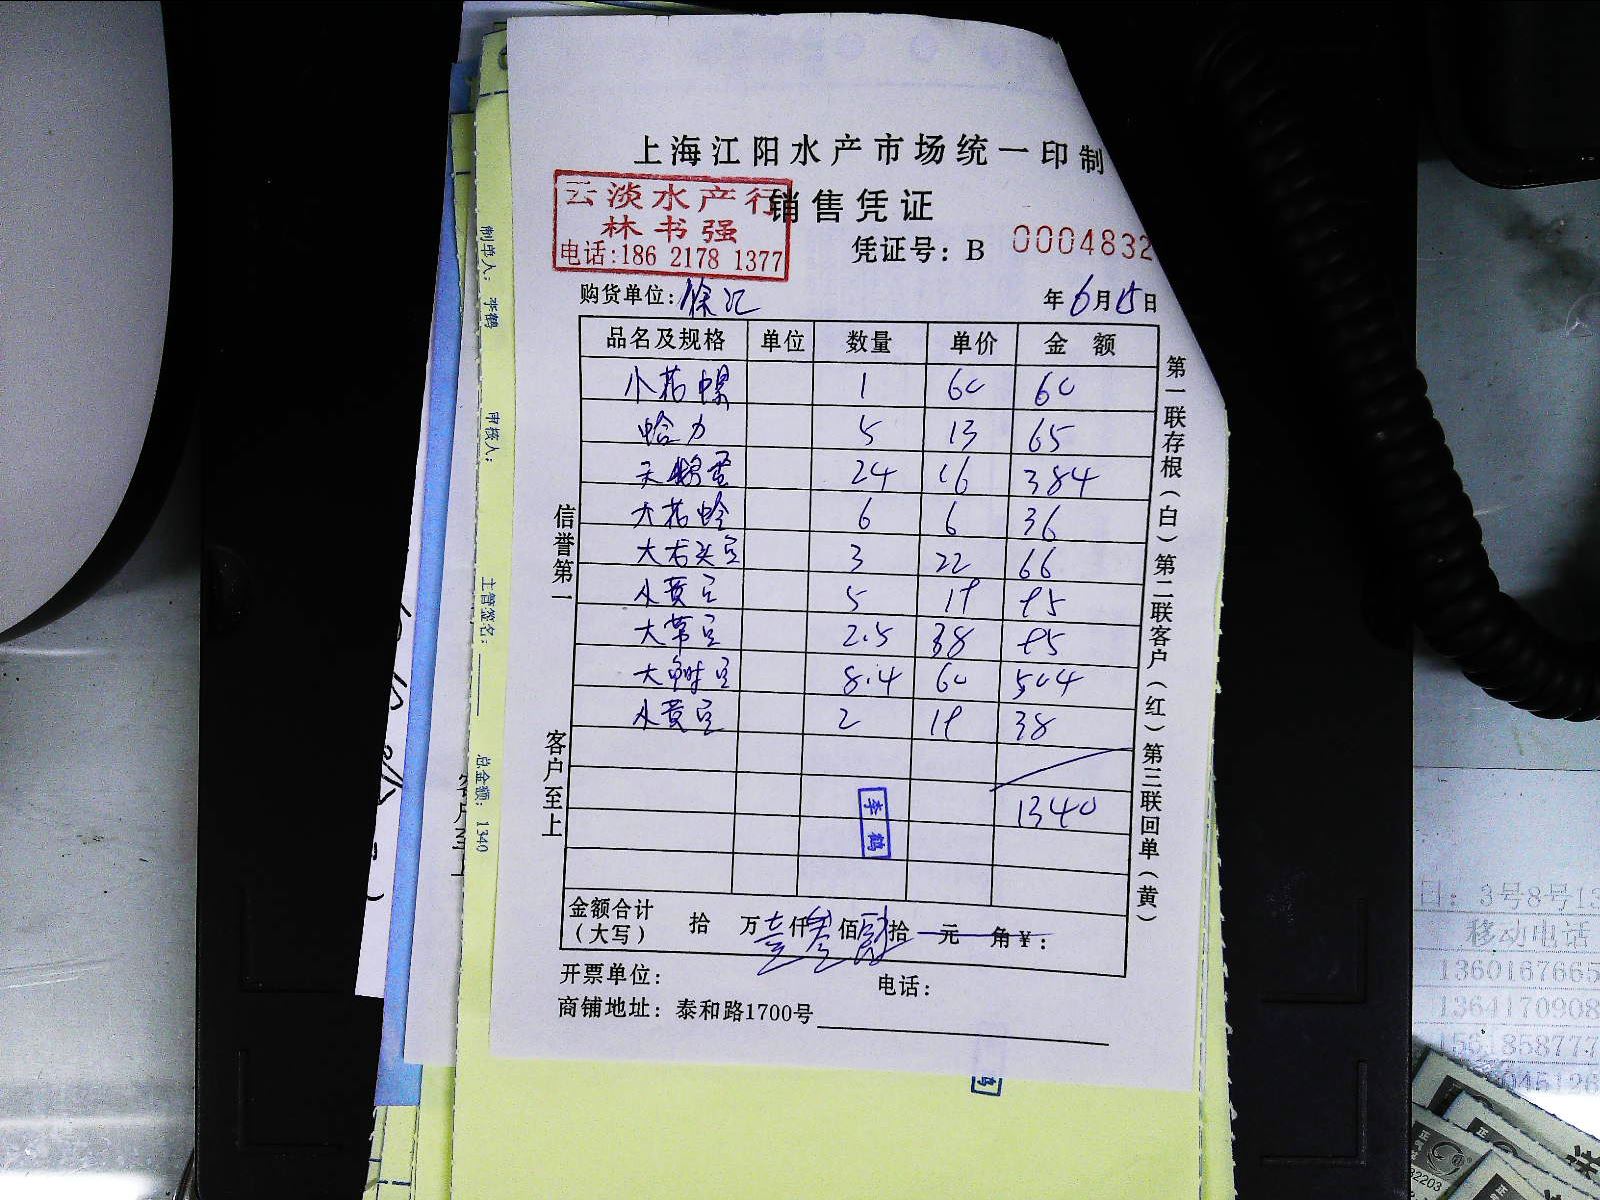 上海江阳水产市场统一印制
云淡水产行
林书强
电话:186 2178 1377
销售凭证
凭证号: B 0004832
购货单位: 徐汇 年6月15日
品名及规格 单位 数量 单价 金额
小花螺 1 60 60
哈力 5 13 65
天鹅蛋 24 16 384
大花蛤 6 6 36
大石头豆 3 22 66
小黄豆 5 19 95
大常豆 2.5 38 95
大 豆 8.4 60 504
小黄豆 2 19 38
1340
李鹤
金额合计（大写） 拾 万 壹 仟 叁 佰 肆 拾 元 角 ¥:
开票单位: 电话:
商铺地址: 泰和路1700号
信誉第一
客户至上
第一联存根（白）第二联客户（红）第三联回单（黄）
制单人: 李鹤
审核人:
主管签名:
总金额: 1340
鹤
3号8号13
移动电话
1360167665
1364170908